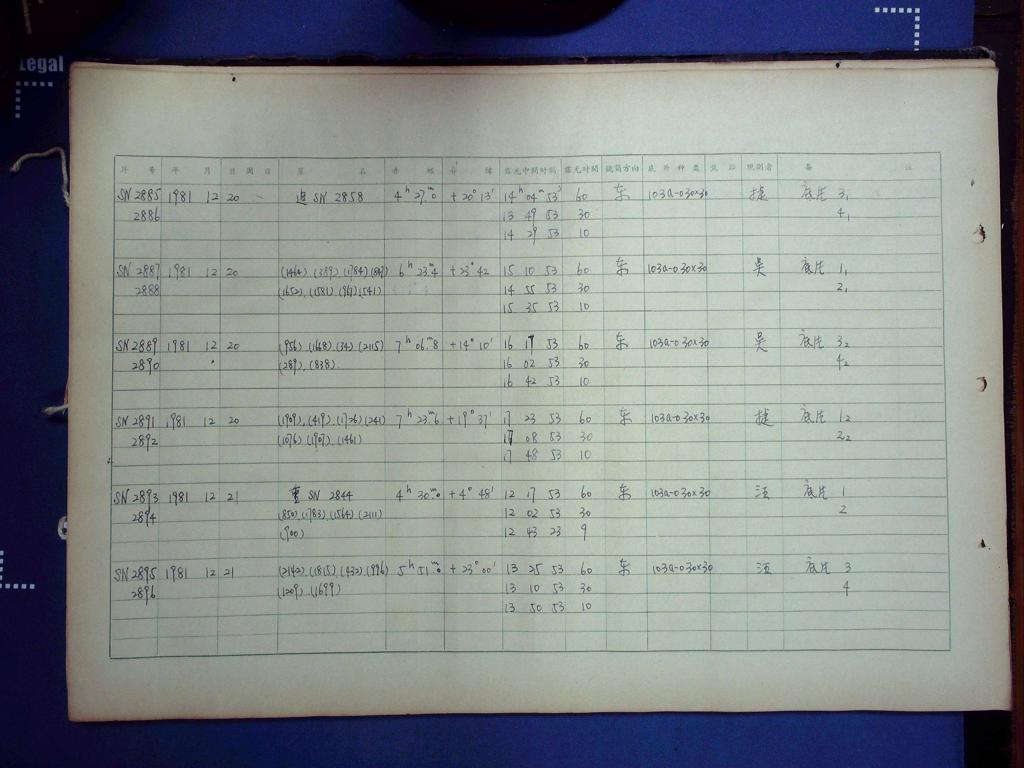 Legal
序 号 年 月 日 星 名 赤 经 赤 纬 露光中间时刻 露光时间 镜筒方向 底片种类 观测者 备 注
SN 2885 1981 12 20 追 SN 2858 4h 27m.0 +20° 13′ 14h 04m 53s 60 东 103a-O 30×30 捷 底片 31
2886 13 49 53 30 41
14 29 53 10
SN 2887 1981 12 20 (1464), (389), (1784) 6h 23.4 +23° 42 15 10 53 60 东 103a-O 30×30 吴 底片 11
2888 (1652), (1581), (961), (541) 14 55 53 30 21
15 35 53 10
SN 2889 1981 12 20 (956), (1668), (34), (2115) 7h 06m.8 +14° 10′ 16 17 53 60 东 103a-O 30×30 吴 底片 32
2890 (289), (838). 16 02 53 30 42
16 42 53 10
SN 2891 1981 12 20 (1909), (419), (1726), (241) 7h 23m.6 +19° 37′ 17 23 53 60 东 103a-O 30×30 捷 底片 12
2892 (1076), (1907), (1461) 17 08 53 30 22
17 48 53 10
SN 2893 1981 12 21 重 SN 2844 4h 30m.0 +4° 48′ 12 17 53 60 东 103a-O 30×30 汪 底片 1
2894 (850), (1783), (1564), (2111) 12 02 53 30 2
(900) 12 43 23 9
SN 2895 1981 12 21 (2142), (1815), (432), (996) 5h 51m.0 +23° 00′ 13 25 53 60 东 103a-O 30×30 汪 底片 3
2896 (1209), (1699) 13 10 53 30 4
13 50 53 10